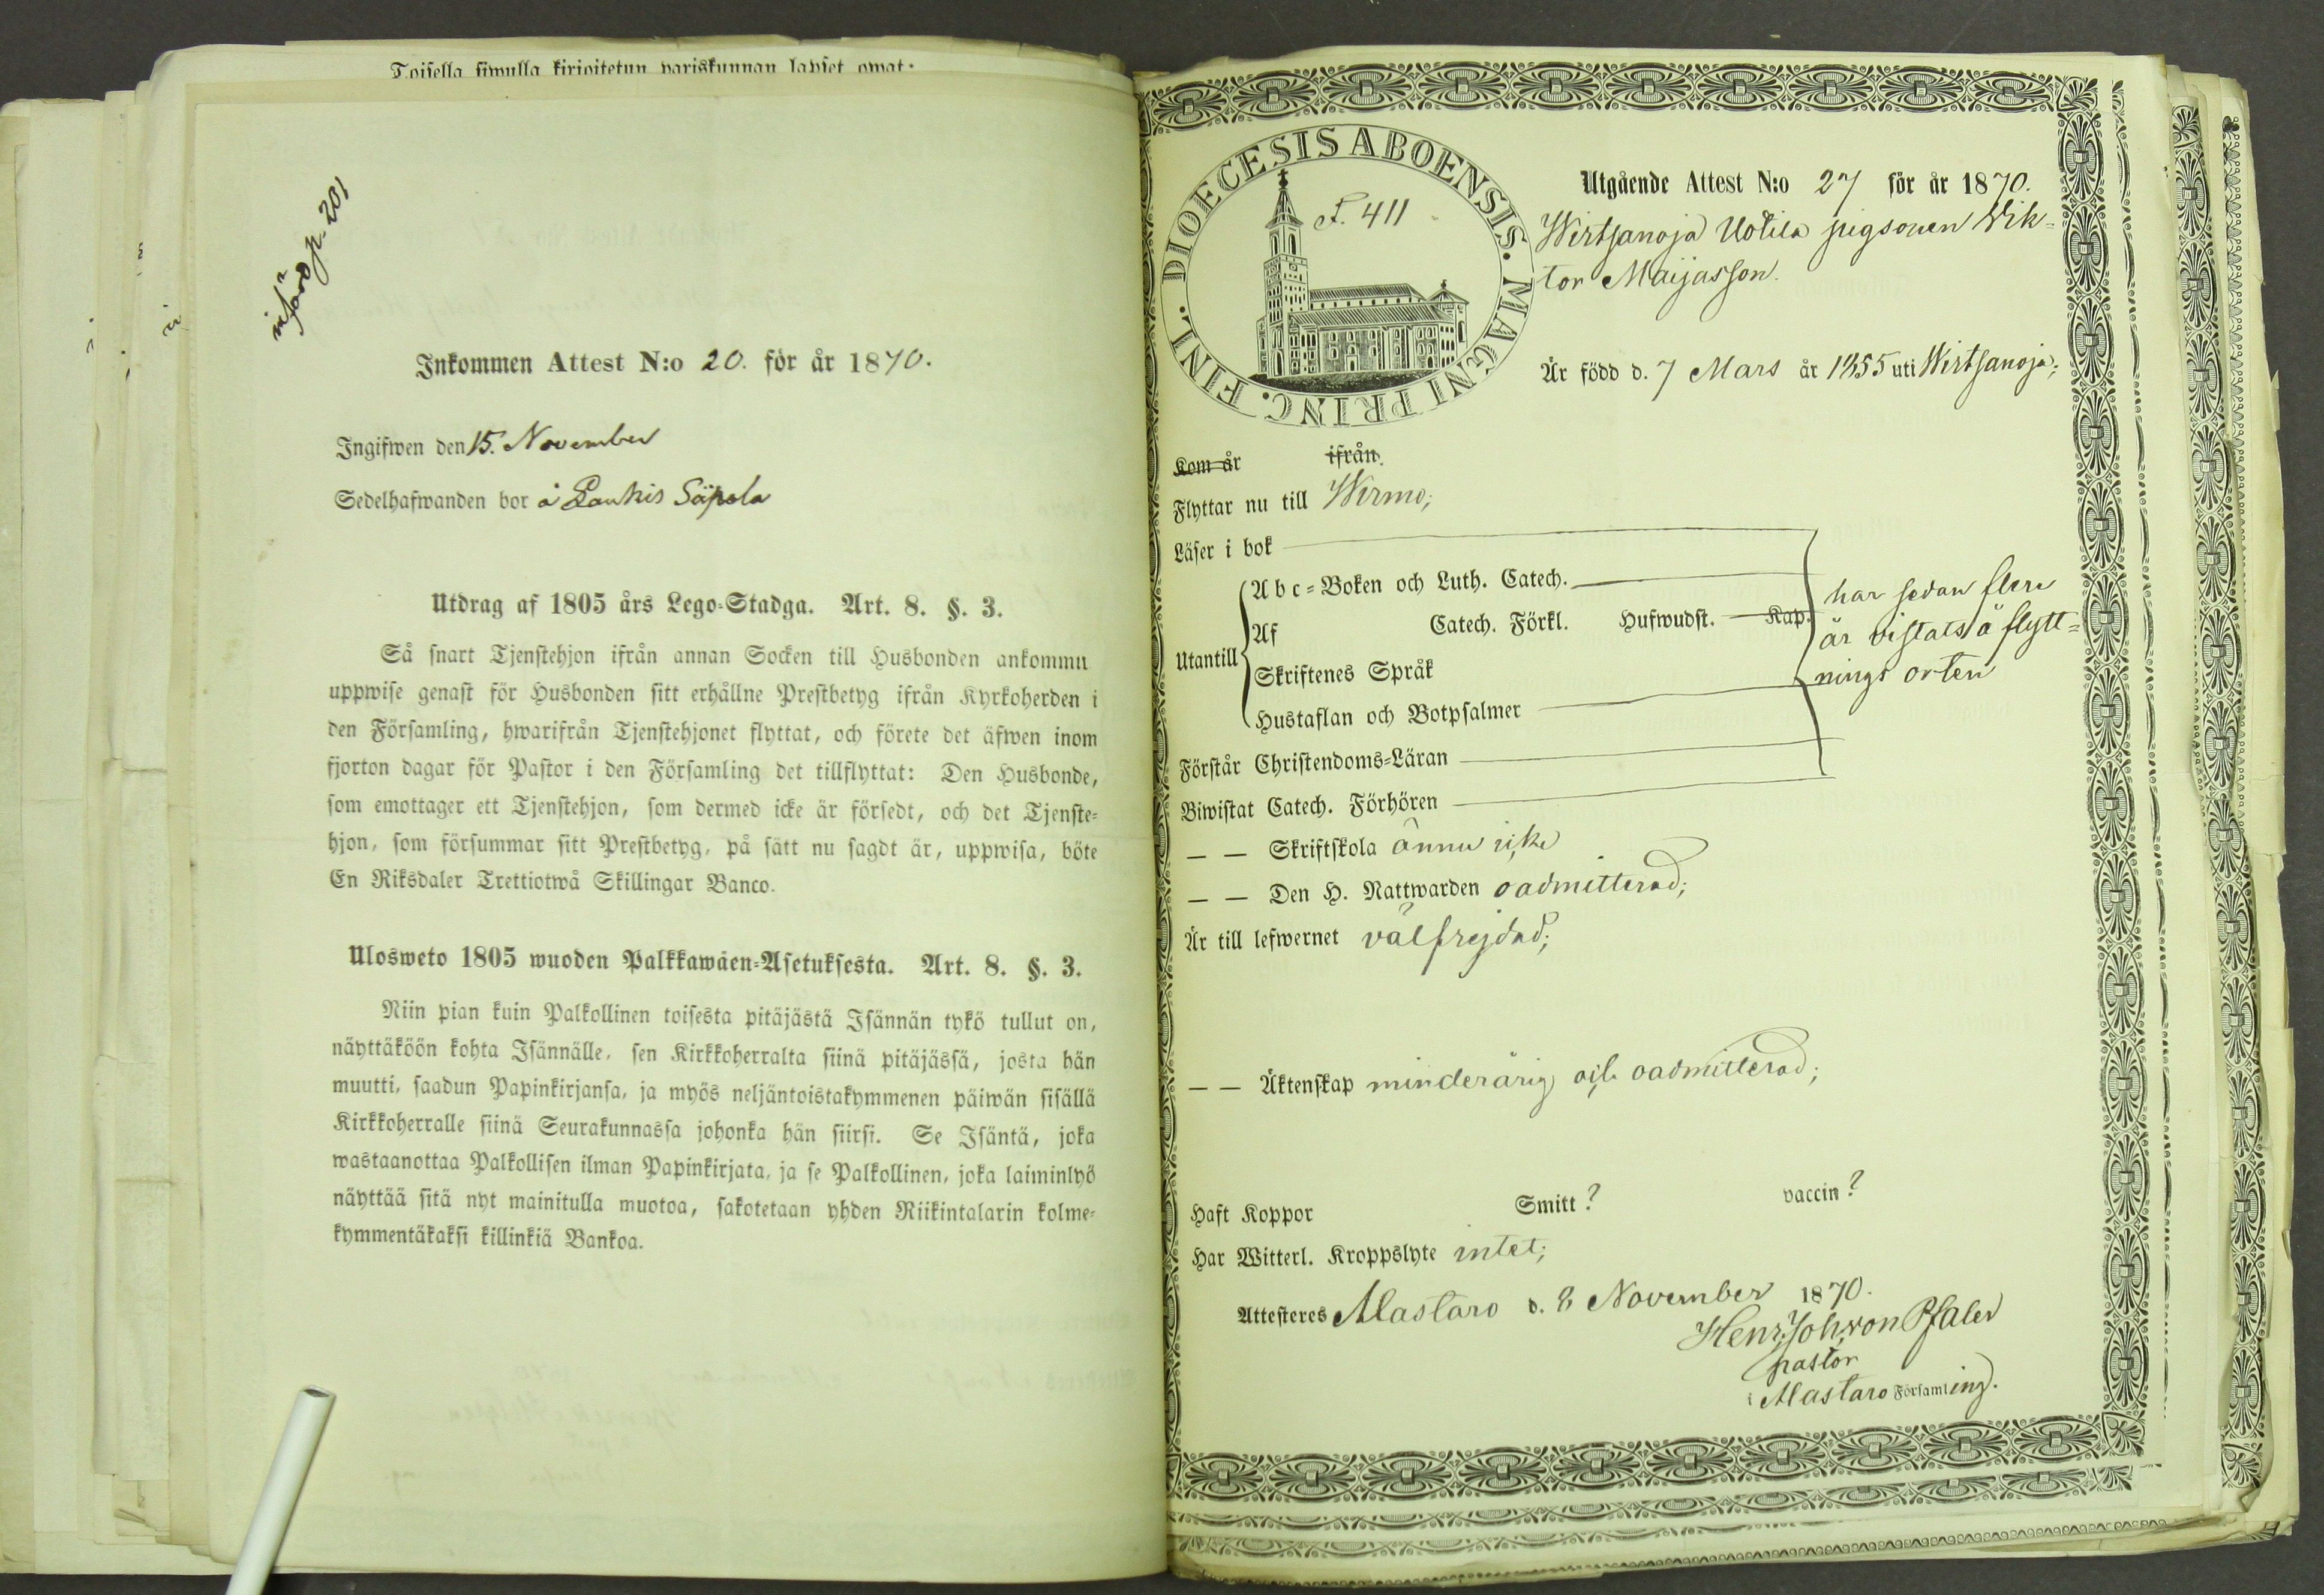 Toisella siwulla kirjoitetun pariskunnan lapset owat:
införd p. 201
Inkommen Attest N:o 20. för år 1870.
Ingifwen den 15. November
Sedelhafwanden bor å Laukis Säpsla
Utdrag af 1805 års Lego-Stadga. Art. 8. §. 3.
Så snart Tjenstehjon ifrån annan Socken till Husbonden ankommit
uppwise genast för Husbonden sitt erhållne Prestbetyg ifrån Kyrkoherden i
den Församling, hwarifrån Tjenstehjonet flyttat, och förete det äfwen inom
fjorton dagar för Pastor i den Församling det tillflyttat: Den Husbonde,
som emottager ett Tjenstehjon, som dermed icke är försedt, och det Tjenste-
hjon, som försummar sitt Prestbetyg, på sätt nu sagdt är, uppwisa, böte
En Riksdaler Trettiotwå Skillingar Banco.
Ulosweto 1805 wuoden Palkkawäen-Asetuksesta. Art. 8. §. 3.
Niin pian kuin Palkollinen toisesta pitäjästä Isännän tykö tullut on,
näyttäköön kohta Isännälle, sen Kirkkoherralta siinä pitäjässä, josta hän
muutti, saadun Papinkirjansa, ja myös neljäntoistakymmenen päiwän sisällä
Kirkkoherralle siinä Seurakunnassa johonka hän siirsi. Se Isäntä, joka
wastaanottaa Palkollisen ilman Papinkirjata, ja se Palkollinen, joka laiminlyö
näyttää sitä nyt mainitulla muotoa, sakotetaan yhden Riikintalarin kolme-
kymmentäkaksi killinkiä Bankoa.
DIOECESIS ABOENSIS. MAGNI PRINC. FINL.
F. 411
Utgående Attest N:o 27 för år 1870.
Wirtsanoja Uotila pigsonen Wik-
tor Maijasson.
Är född d. 7 Mars år 1855 uti Wirtsanoja;
Kom år ifrån.
Flyttar nu till Wirmo;
Läser i bok
Utantill
Abc-Boken och Luth. Catech.
Af Catech. Förkl. Hufwudst. Kap.
Skriftenes Språk
Hustaflan och Botpsalmer
har sedan flere
år vistats å flytt-
nings orten
Förstår Christendoms-Läran
Biwistat Catech. Förhören
— — Skriftskola ännu icke
— — Den H. Nattwarden oadmitterad;
Är till lefwernet välfrejdad;
— — Äktenskap minderårig och oadmitterad;
Haft Koppor Smitt? vaccin?
Har Witterl. Kroppslyte intet;
Attesteres Alastaro d. 8 November 1870.
Henr. Joh. von Pfaler
pastor
i Alastaro Församling.